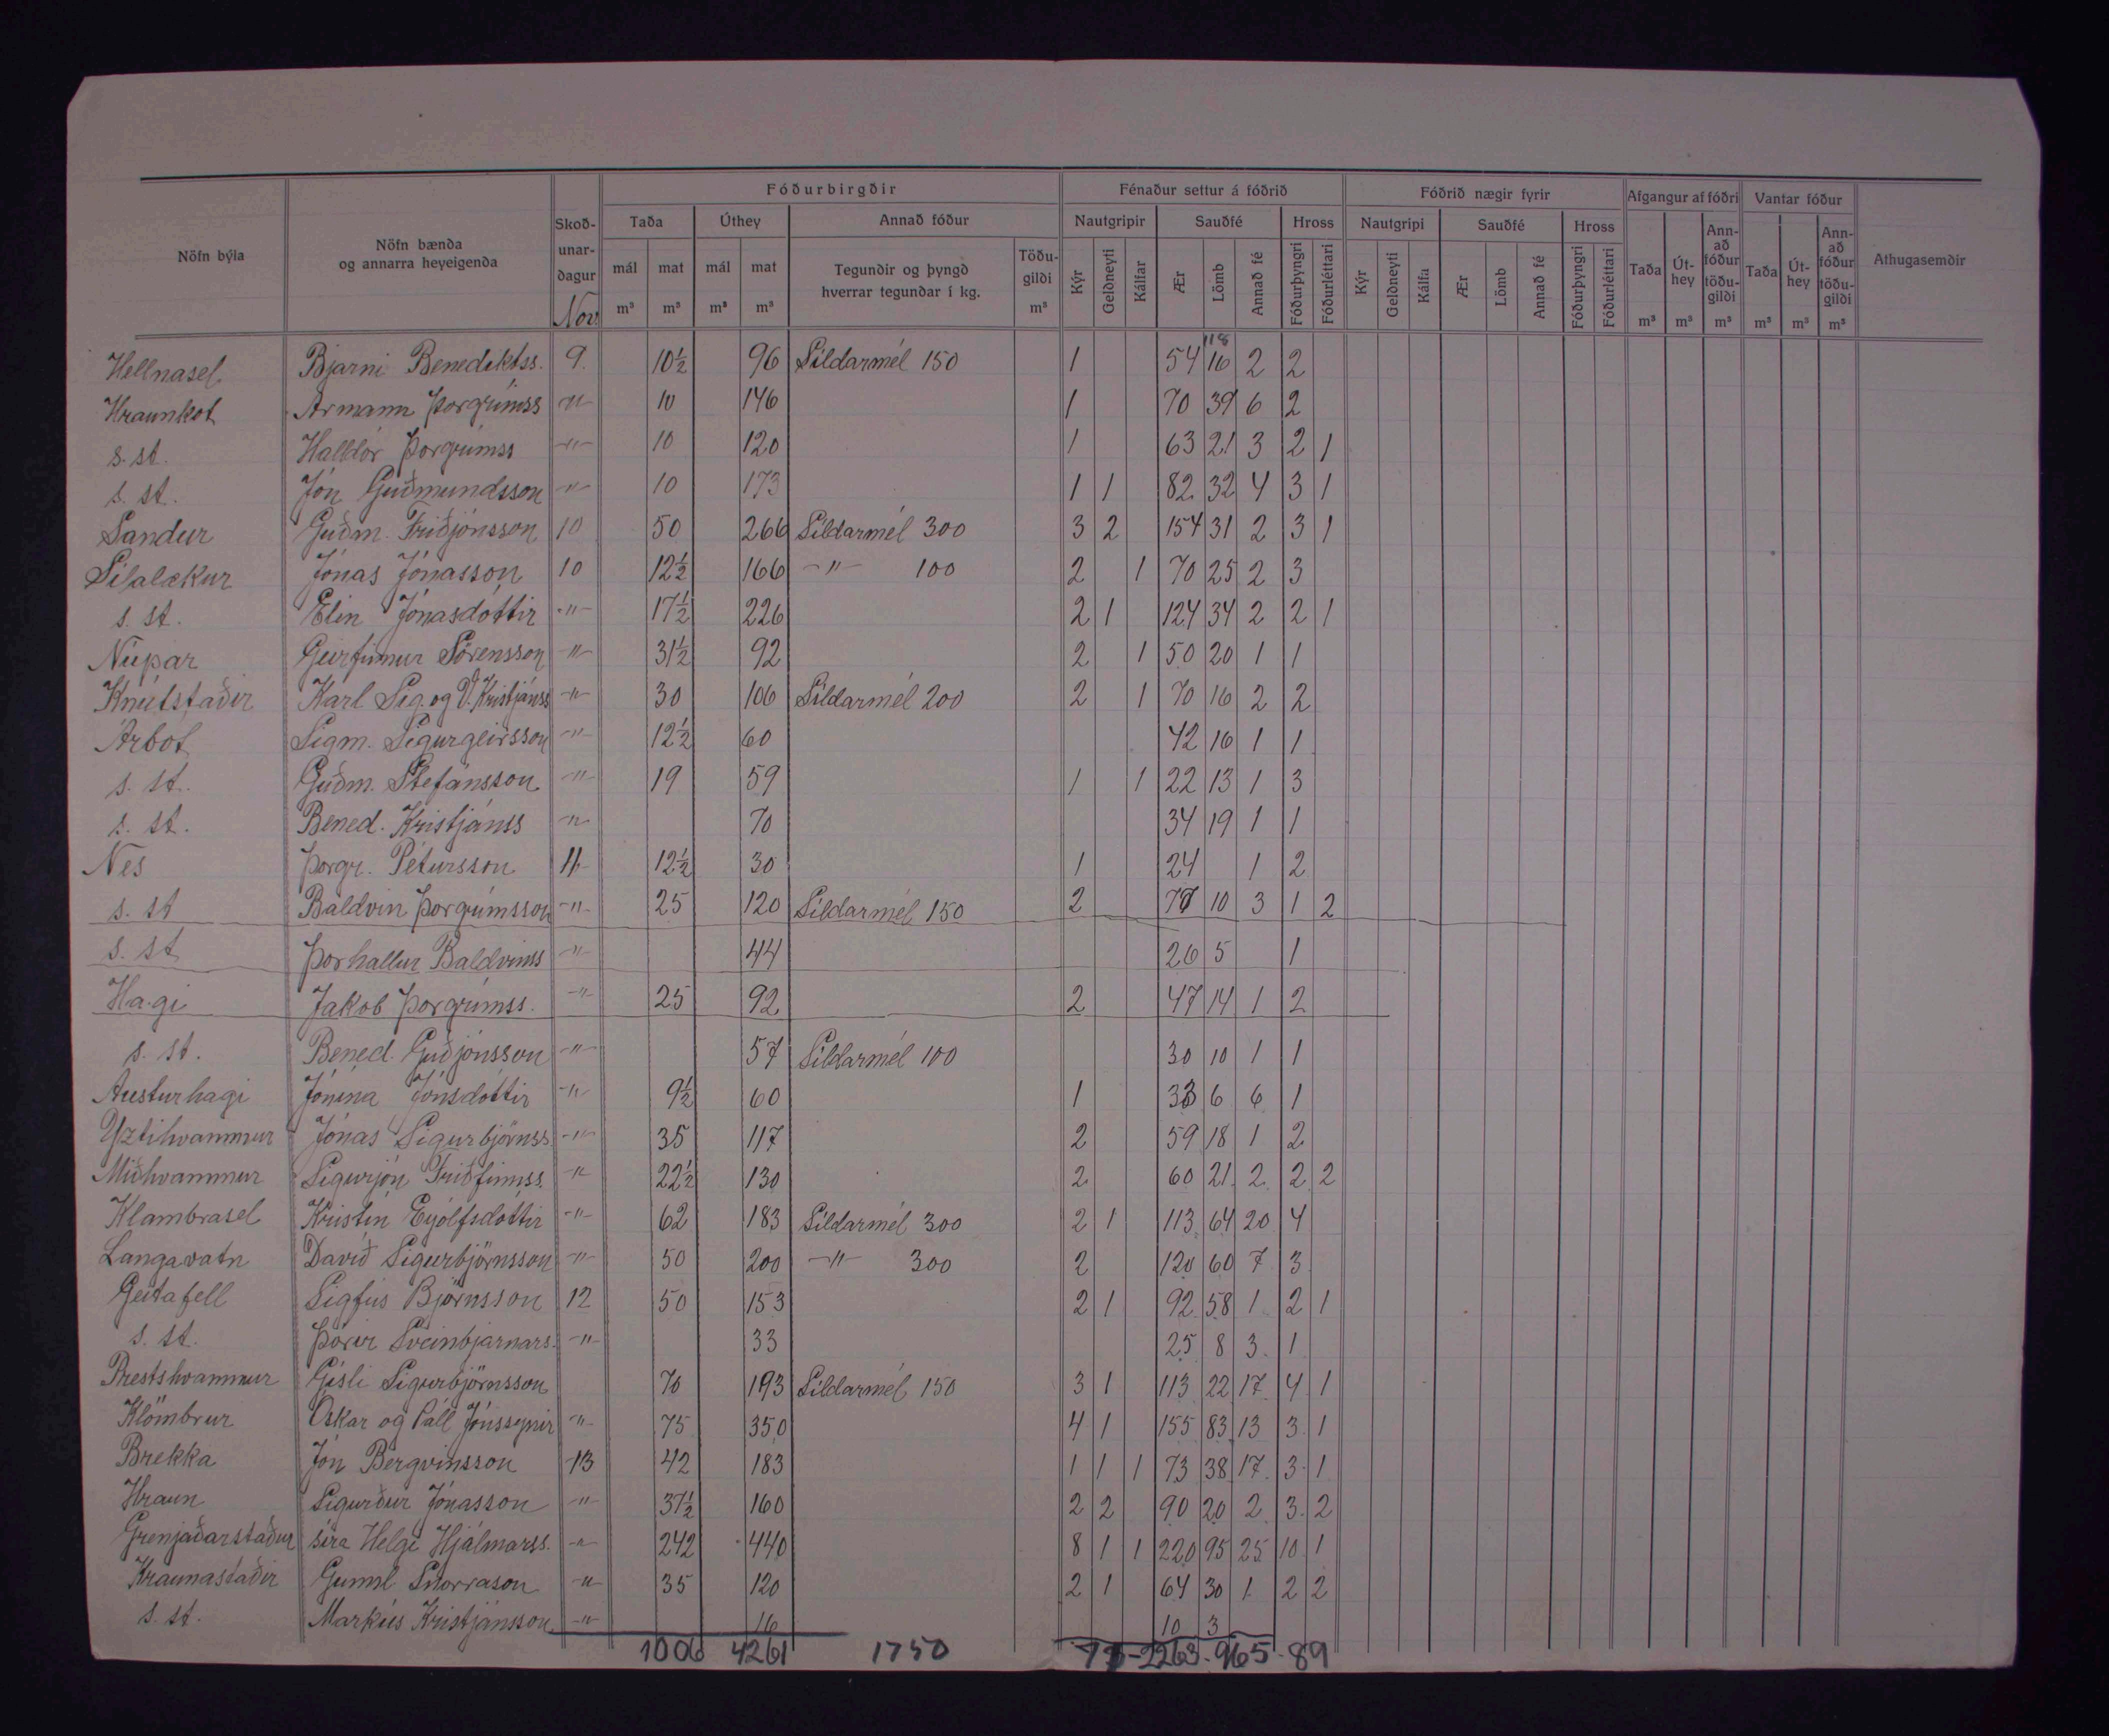 Fóðurbirgðir Fénaður settur á fóðrið Fóðrið nægir fyrir Afgangur af fóðri Vantar fóður
Nöfn býla Nöfn bænda og annarra heyeigenda Skoð-unar-dagur Taða Úthey Annað fóður Nautgripir Sauðfé Hross Nautgripi Sauðfé Hross Taða Út-hey Ann-að fóður töðu-gildi Taða Út-hey Ann-að fóður töðu-gildi Athugasemdir
mál mat mál mat Tegundir og þyngd hverrar tegundar í kg. Töðu-gildi Kýr Geldneyti Kálfar Ær Lömb Annað fé Fóðurþyngri Fóðurléttari Kýr Geldneyti Kálfa Ær Lömb Annað fé Fóðurþyngri Fóðurléttari
Nóv m³ m³ m³ m³ m³ m³ m³ m³ m³ m³ m³
118
Hellnasel Bjarni Benediktss. 9. 10½ 96 Síldarmél 150 1 54 16 2 2
Hraunkot Ármann Þorgrímss -"- 10 146 1 70 39 6 2
s. st. Halldór Þorgrímss -"- 10 120 1 63 21 3 2 1
s. st. Jón Guðmundsson -"- 10 173 1 1 82 32 4 3 1
Sandur Guðm. Friðjónsson 10 50 266 Síldarmél 300 3 2 154 31 2 3 1
Sílalækur Jónas Jónasson 10 12½ 166 -"- 100 2 1 70 25 2 3
s. st. Elín Jónasdóttir -"- 17½ 226 2 1 124 34 2 2 1
Núpar Geirfinnur Sörensson -"- 31½ 92 2 1 50 20 1 1
Knútstaðir Karl Sig. og V. Kristjánss -"- 30 106 Síldarmél 200 2 1 70 16 2 2
Árbót Sigm. Sigurgeirsson -"- 12½ 60 42 16 1 1
s. st. Guðm. Stefánsson -"- 19 59 1 1 22 13 1 3
s. st. Bened. Kristjánss -"- 70 34 19 1 1
Nes Þorgr. Pétursson 11 12½ 30 1 24 1 2
s. st Baldvin Þorgrímsson -"- 25 120 Síldarmél 150 2 77 10 3 1 2
s. st Þórhallur Baldvinss -"- 44 26 5 1
Hagi Jakob Þorgrímss. -"- 25 92 2 47 14 1 2
s. st. Bened. Guðjónsson -"- 57 Síldarmél 100 30 10 1 1
Austurhagi Jónína Jónsdóttir -"- 9½ 60 1 33 6 6 1
Yztihvammur Jónas Sigurbjörnss -"- 35 117 2 59 18 1 2
Miðhvammur Sigurjón Friðfinnss. -"- 22½ 130 2 60 21 2 2 2
Klambrasel Kristín Eyjólfsdóttir -"- 62 183 Síldarmél 300 2 1 113 64 20 4
Langavatn Davíð Sigurbjörnsson -"- 50 200 -"- 300 2 120 60 7 3
Geitafell Sigfús Björnsson 12 50 153 2 1 92 58 1 2 1
s. st. Þórir Sveinbjarnars. -"- 33 25 8 3 1
Prestshvammur Gísli Sigurbjörnsson 70 193 Síldarmél 150 3 1 113 22 17 4 1
Klömbrur Óskar og Páll Jónssynir -"- 75 350 4 1 155 83 13 3 1
Brekka Jón Bergvinsson 13 42 183 1 1 1 73 38 17 3 1
Hraun Sigurður Jónasson -"- 37½ 160 2 2 90 20 2 3 2
Grenjaðarstaður síra Helgi Hjálmarss. -"- 242 440 8 1 1 220 95 25 10 1
Kraunastaðir Gunnl Snorrason -"- 35 120 2 1 64 30 1 2 2
s. st. Markús Kristjánsson -"- 16 10 3
1006 4261 1750 2263 965 89